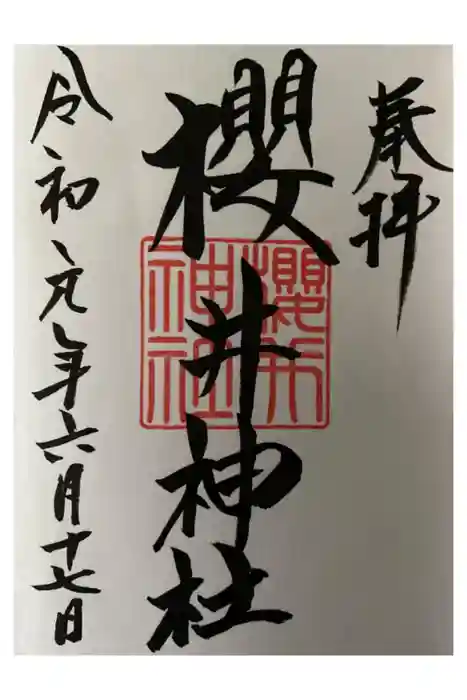 奉拝
櫻井神社
櫻井
神社
令和元年六月十七日